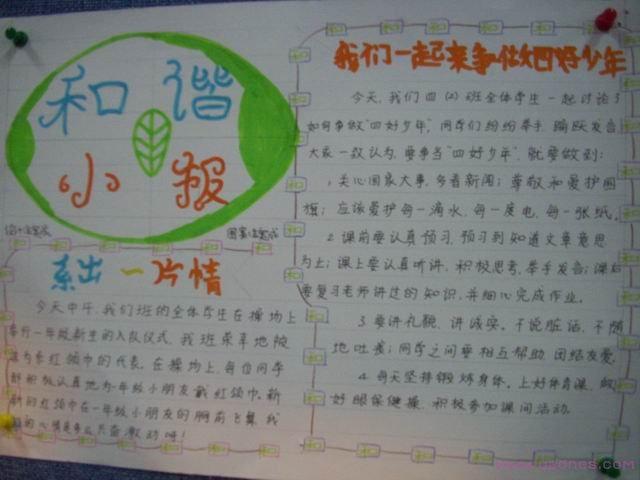 和谐
小报
系出一片情
今天中午,我们班的全体学生在操场上
举行一年级新生的入队仪式,我班荣幸地被
选为系红领巾的代表。在操场上,每位同学
都积极认真地为一年级小朋友戴红领巾,新
新的红领巾在一年级小朋友的胸前飞舞,我
的心情是多么激动呀!
我们一起来争做四好少年
今天,我们四(2)班全体学生一起讨论了
如何争做“四好少年”,同学们纷纷举手,踊跃发言,
大家一致认为,要争当“四好少年”就要做到:
1.关心国家大事,多看新闻;尊敬和爱护国
旗;应该爱护每一滴水、每一度电、每一张纸。
2.课前要认真预习,预习到知道文章意思
为止;课上要认真听讲,积极思考,举手发言;课后
要复习老师讲过的知识,并细心完成作业。
3.要讲礼貌,讲诚实。不说脏话,不随
地吐痰;同学之间要相互帮助,团结友爱。
4.每天坚持锻炼身体。上好体育课,做
好眼保健操,积极参加课间活动。